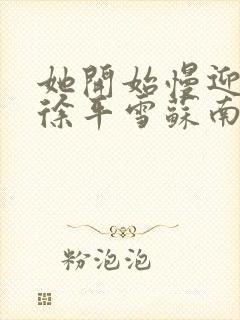 她開始慢迎
徐平雪蘇南
粉泡泡